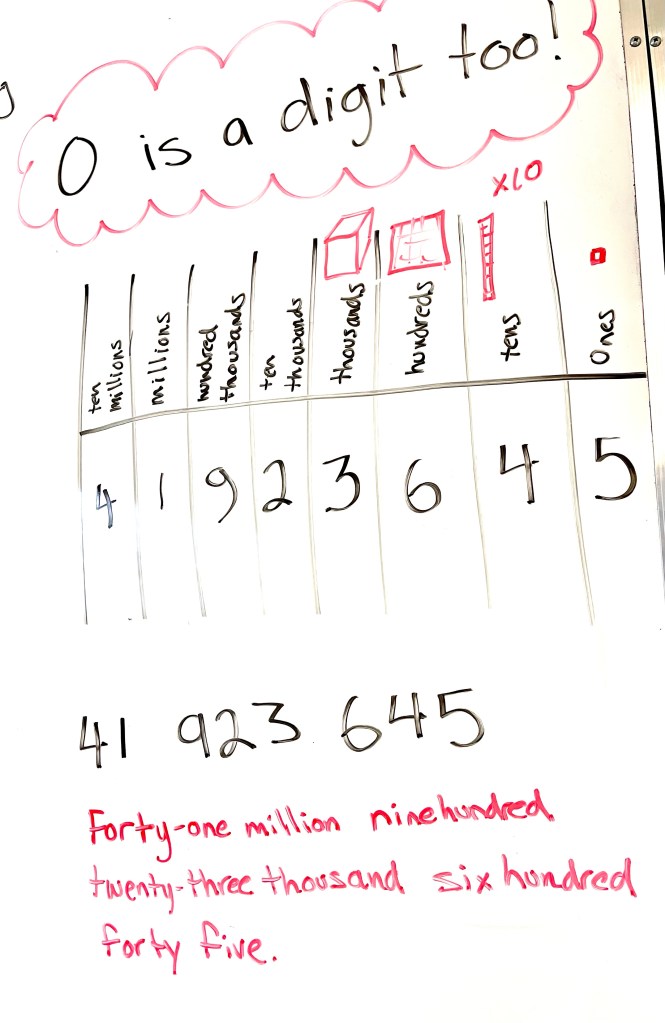 0 is a digit too!
x10
ten millions
millions
hundred thousands
ten thousands
thousands
hundreds
tens
Ones
4 1 9 2 3 6 4 5
41 923 645
Forty-one million ninehundred
twenty-three thousand six hundred
forty five.